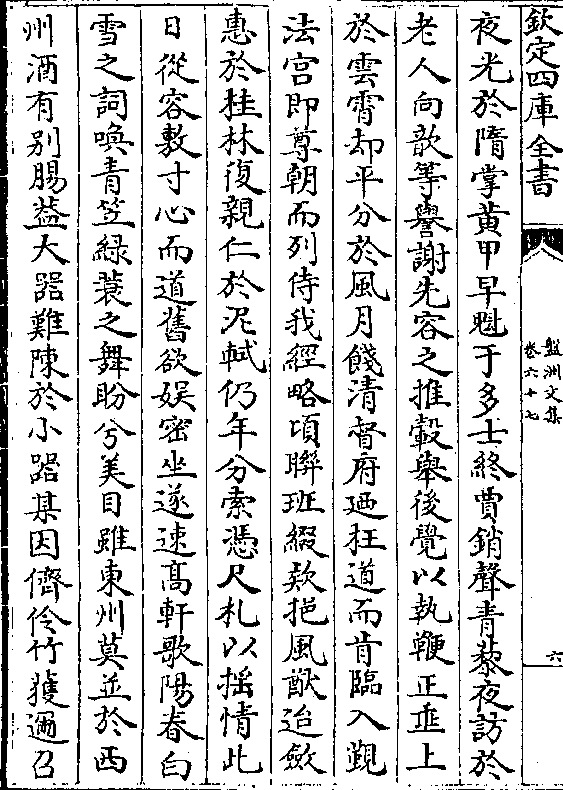 欽定四庫全書
盤洲文集
卷六十七
六
夜光於隋掌黄甲早魁于多士終賈銷聲青藜夜訪於
老人向歆等譽謝先容之推轂舉後覺以執鞭正垂上
於雲霄却平分於風月餞清督府廼枉道而肯臨入覲
法宫即尊朝而列侍我經略頃聯班綴欵挹風猷迨斂
惠於桂林復親仁於泥軾仍年分索憑尺札以揺情此
日從容敷寸心而道舊欲娱密坐遂速髙軒歌陽春白
雪之詞喚青笠緑蓑之舞盼兮美目雖東州莫並於西
州酒有别腸葢大器難陳於小器某因儕伶竹䕶邇召